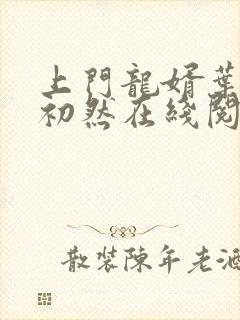 上門龍婿葉
初然在綫閱
散裝陳年老酒